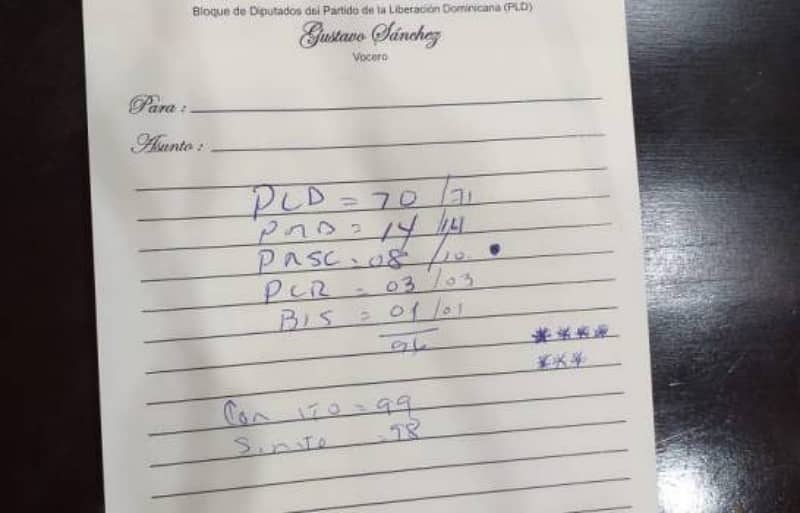 Bloque de Diputados del Partido de la Liberación Dominicana (PLD)
Gustavo Sánchez
Vocero
Para :
Asunto :
PLD = 70 /71
PRD = 14 /14
PRSC = 08 /10 •
PCR = 03 /03
BIS = 01 /01
96
****
***
Con ITO = 99
Sin ITO = 98